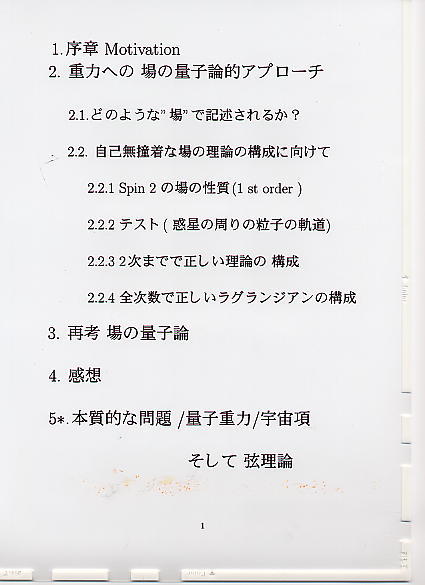 1.序章 Motivation
2. 重力への 場の量子論的アプローチ
2.1.どのような" 場" で記述されるか？
2.2. 自己無撞着な場の理論の構成に向けて
2.2.1 Spin 2 の場の性質(1 st order )
2.2.2 テスト( 惑星の周りの粒子の軌道)
2.2.3 2次までで正しい理論の 構成
2.2.4 全次数で正しいラグランジアンの構成
3. 再考 場の量子論
4. 感想
5*.本質的な問題 /量子重力/宇宙項
そして 弦理論
1